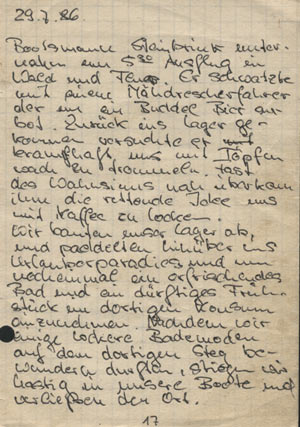 29.7.86
Bootsmann Steinbrink unter-
nahm um 5³⁰ Ausflug in
Wald und Feld. Er schwatzte
mit einem Mähdrescherfahrer
der ihm ein Buddel Bier an-
bot. Zurück ins Lager ge-
kommen versuchte er
krampfhaft uns mit Töpfen
wach zu trommeln. Fast
des Wahnsinns nah überkam
ihm die rettende Idee uns
mit Kaffee zu locken.
Wir bauten unser Lager ab,
und paddelten hinüber ins
Urlauberparadies und um
nocheinmal ein erfrischendes
Bad und ein dürftiges Früh-
stück im dortigen Konsum
einzunehmen. Nachdem wir
einige lockere Bademoden
auf dem dortigen Steg be-
wundern durften, stiegen wir
hastig in unsere Boote und
verließen den Ort.
17